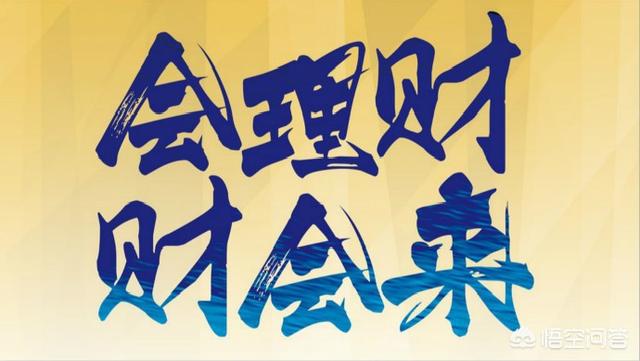 会理财
财会来
悟空问答